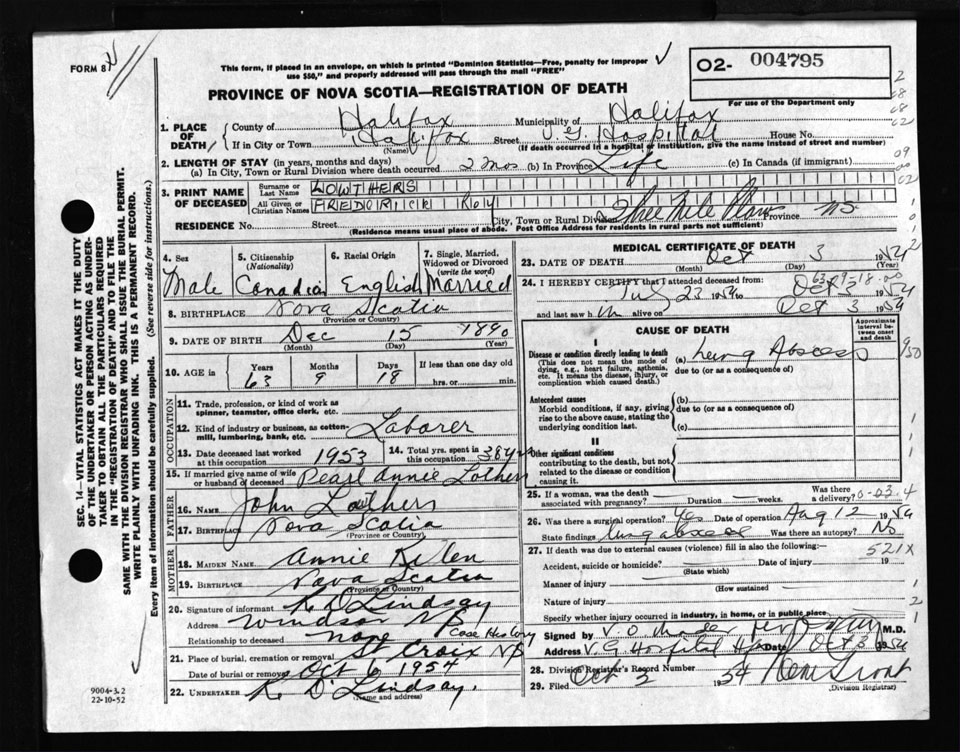 FORM 8
This form, if placed in an envelope, on which is printed "Dominion Statistics—Free, penalty for improper
use $50," and properly addressed will pass through the mail "FREE"
02- 004795
For use of the Department only
PROVINCE OF NOVA SCOTIA—REGISTRATION OF DEATH
1. PLACE OF DEATH County of Halifax Municipality of Halifax
If in City or Town Halifax Street V.G. Hospital House No.
(Name) (If death occurred in a hospital or institution, give the name instead of street and number)
2. LENGTH OF STAY (in years, months and days)
(a) In City, Town or Rural Division where death occurred 2 mos (b) In Province Life (c) In Canada (if immigrant)
3. PRINT NAME OF DECEASED Surname or Last Name LOWTHERS
All Given or Christian Names FREDRICK ROY
RESIDENCE No. Street City, Town or Rural Division Three Mile Plains Province NS
(Residence means usual place of abode. Post Office Address for residents in rural parts not sufficient)
4. Sex Male
5. Citizenship (Nationality) Canadian
6. Racial Origin English
7. Single, Married, Widowed or Divorced (write the word) Married
8. BIRTHPLACE Nova Scotia
(Province or Country)
9. DATE OF BIRTH Dec 15 1890
(Month) (Day) (Year)
10. AGE in Years 63 Months 9 Days 18 If less than one day hrs. or min.
OCCUPATION
11. Trade, profession, or kind of work as
spinner, teamster, office clerk, etc.
12. Kind of industry or business, as cotton-
mill, lumbering, bank, etc. Laborer
13. Date deceased last worked at this occupation 1953
14. Total yrs. spent in this occupation 38 yrs
15. If married give name of wife
or husband of deceased Pearl Annie Lothers
FATHER
16. Name John Lothers
17. Birthplace Nova Scotia
(Province or Country)
MOTHER
18. Maiden Name Annie
19. Birthplace Nova Scotia
(Province or Country)
20. Signature of informant K D Lindsay
Address Windsor NS
Relationship to deceased none Case History
21. Place of burial, cremation or removal St Croix NS
Date of burial or removal Oct 6 1954
22. UNDERTAKER K. D. Lindsay.
(Name and address)
MEDICAL CERTIFICATE OF DEATH
23. DATE OF DEATH Oct 3 1954
(Month) (Day) (Year)
63-9-18.00
24. I HEREBY CERTIFY that I attended deceased from
July 23 1954 to Oct 3 1954
and last saw h im alive on Oct 3 1954
CAUSE OF DEATH
Approximate interval between onset and death
I
Disease or condition directly leading to death
(This does not mean the mode of
dying, e.g., heart failure, asthenia,
etc. It means the disease, injury, or
complication which caused death.)
(a) Lung Abscess
due to (or as a consequence of)
Antecedent causes
Morbid conditions, if any, giving
rise to the above cause, stating the
underlying condition last.
(b)
due to (or as a consequence of)
(c)
II
Other significant conditions
contributing to the death, but not
related to the disease or condition
causing it.
25. If a woman, was the death
associated with pregnancy? Duration weeks. Was there a delivery? 0-03.4
26. Was there a surgical operation? Yes Date of operation Aug 12 1954
State findings lung abscess Was there an autopsy? No
27. If death was due to external causes (violence) fill in also the following:— 521X
Accident, suicide or homicide? Date of injury 19
(State which)
Manner of injury
(How sustained)
Nature of injury
Specify whether injury occurred in industry, in home, or in public place
Signed by V. O. M.D.
Address V. G. Hospital Hfx Date Oct 3 1954
28. Division Registrar's Record Number
29. Filed Oct 1954
(Division Registrar)
SEC. 14—VITAL STATISTICS ACT MAKES IT THE DUTY
OF THE UNDERTAKER OR PERSON ACTING AS UNDER-
TAKER TO OBTAIN ALL THE PARTICULARS REQUIRED
IN THE "REGISTRATION OF DEATH" AND TO FILE THE
SAME WITH THE DIVISION REGISTRAR WHO SHALL ISSUE THE BURIAL PERMIT.
WRITE PLAINLY WITH UNFADING INK. THIS IS A PERMANENT RECORD.
Every item of information should be carefully supplied. (See reverse side for instructions.)
9004-3.2
22-10-52